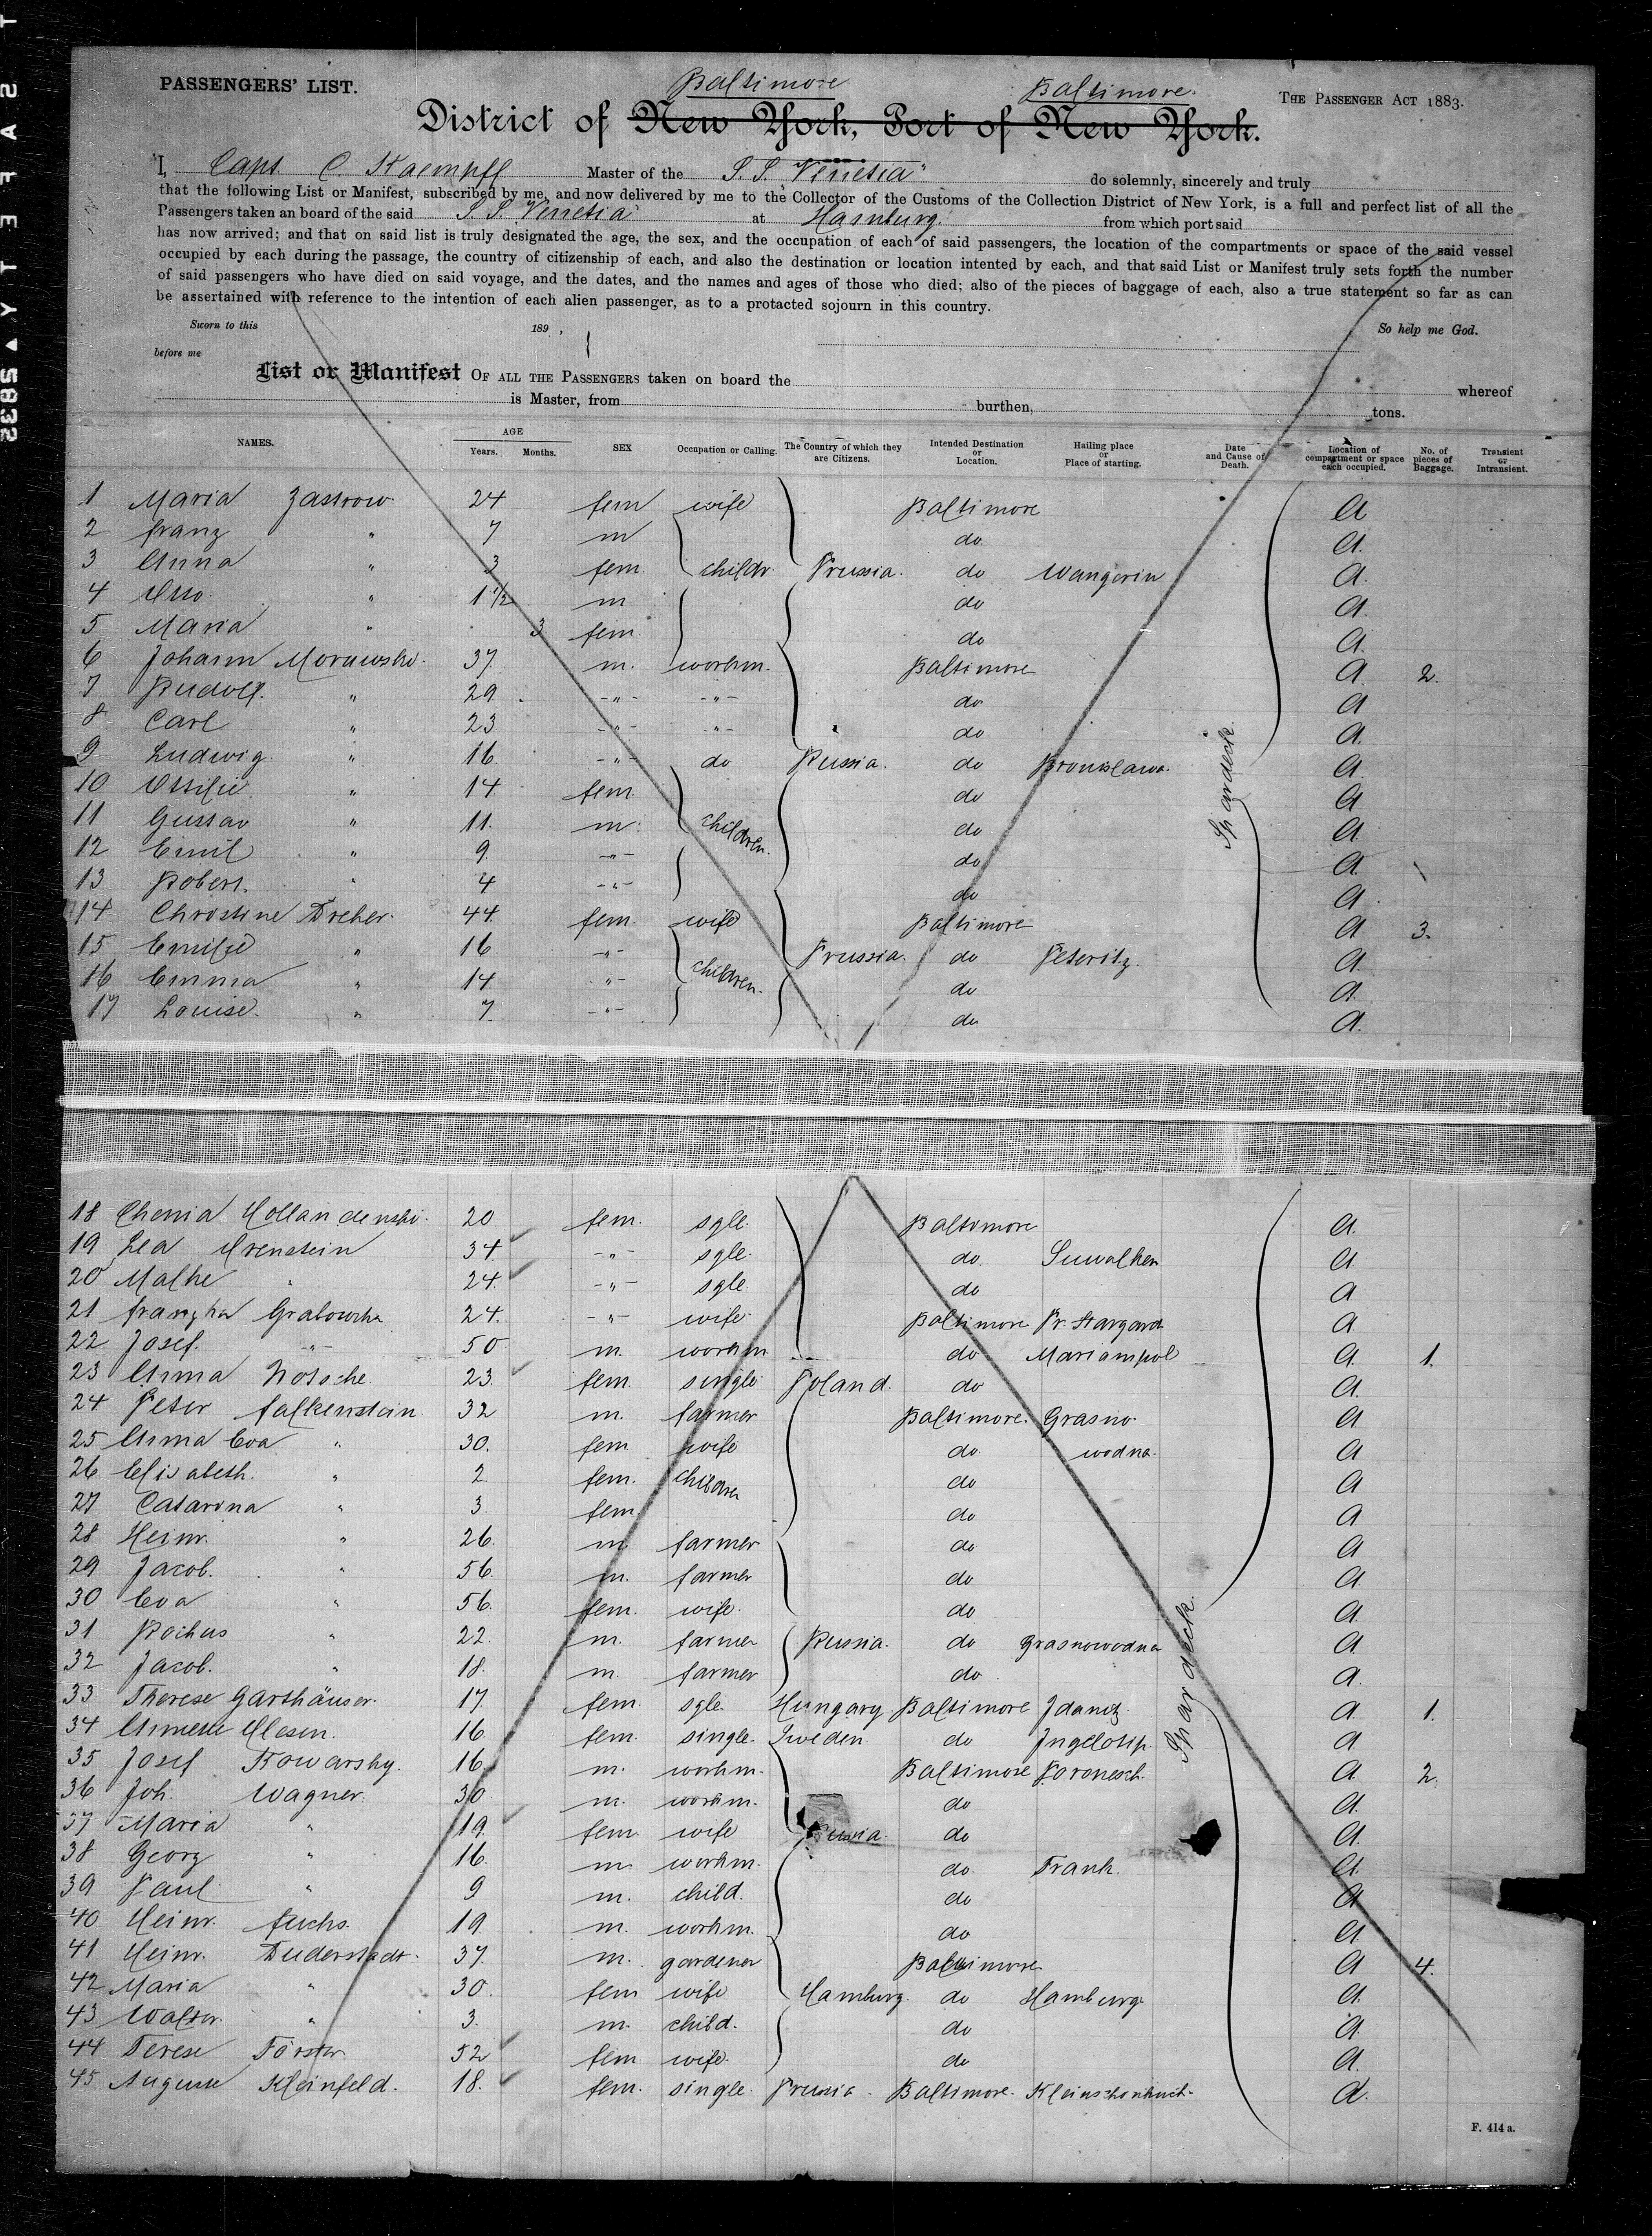 PASSENGERS' LIST.
Baltimore Baltimore.
THE PASSENGER ACT 1883.
District of New York, Port of New York.
I, Capt. C. Kaempff Master of the S.S. "Venetia" do solemnly, sincerely and truly
that the following List or Manifest, subscribed by me, and now delivered by me to the Collector of the Customs of the Collection District of New York, is a full and perfect list of all the
Passengers taken an board of the said S.S. "Venetia" at Hamburg. from which port said
has now arrived; and that on said list is truly designated the age, the sex, and the occupation of each of said passengers, the location of the compartments or space of the said vessel
occupied by each during the passage, the country of citizenship of each, and also the destination or location intented by each, and that said List or Manifest truly sets forth the number
of said passengers who have died on said voyage, and the dates, and the names and ages of those who died; also of the pieces of baggage of each, also a true statement so far as can
be assertained with reference to the intention of each alien passenger, as to a protacted sojourn in this country.
Sworn to this 189 , So help me God.
before me
List or Manifest OF ALL THE PASSENGERS taken on board the whereof
is Master, from burthen, tons.
NAMES. AGE Years. Months. SEX Occupation or Calling. The Country of which they are Citizens. Intended Destination or Location. Hailing place or Place of starting. Date and Cause of Death. Location of compartment or space each occupied. No. of pieces of Baggage. Transient or Intransient.
1 Maria Zastrow 24 fem wife Baltimore A
2 Franz " 7 m do. A.
3 Anna " 3 fem. childr. Prussia. do Wangerin A.
4 Otto " 1 1/2 m. do A.
5 Maria " 3 fem. do A.
6 Johann Morawski. 37. m. workm. Baltimore A. 2.
7 Rudolf. " 29. -"- -"- do A
8 Carl " 23 -"- -"- do A.
9 Ludwig " 16. -"- do Russia. do Bronislawa. A.
10 Ottilie " 14. fem. do A
11 Gustav " 11. m. children. do A
12 Emil " 9. -"- do A
13 Robert. " 4 -"- do A.
14 Christine Dreher. 44. fem. wife Baltimore A 3.
15 Emilie " 16. -"- Prussia. do Peteritz. A.
16 Emma " 14 -"- children. do A.
17 Louise. " 7. -"- do A.
Spardeck
18 Chenia Hollandenski. 20 fem. sgle. Baltimore A.
19 Lea Orenstein 34. -"- sgle. do. Suwalken A
20 Malke " 24. -"- sgle. do A
21 Franzka Grabowska 24. -"- wife Baltimore Pr. Stargard A.
22 Josef. -"- 50 m. workm. do Mariampol A. 1.
23 Anna 23. fem. single Poland. do A.
24 Peter Falkenstein 32 m. farmer Baltimore. Grasno- A
25 Anna Eva " 30. fem. wife do. wodna. A
26 Elisabeth. " 2. fem. children do A
27 Catarina " 3. fem. do A
28 Heinr. " 26. m. farmer do A
29 Jacob. " 56. m. farmer do A.
30 Eva " 56. fem. wife. do A.
31 Rochus " 22. m. farmer Russia. do Grasnowodna A
32 Jacob. " 18. m. farmer do. A.
33 Therese Garthäuser. 17. fem. sgle. Hungary Baltimore A. 1.
34 Annette Olesen. 16. fem. single. Sweden do A
35 Josef Kowarsky. 16. m. workm. Baltimore Woronesch. A. 2.
36 Joh. Wagner. 30. m. workm. do A.
37 Maria " 19. fem. wife Russia. do A.
38 Georg " 16. m. workm. do. Frank. A.
39 Paul " 9 m. child. do A
40 Heinr. Fuchs. 19. m. workm. do A
41 Heinr. Duderstadt. 37. m. gardener Baltimore A 4.
42 Maria " 30. fem wife Hamburg. do Hamburg. A.
43 Walter. " 3. m. child. do A.
44 Terese Förster. 52 fem. wife. do A.
45 Auguste Kleinfeld. 18. fem. single. Prussia. Baltimore. A.
Spardeck.
F. 414 a.